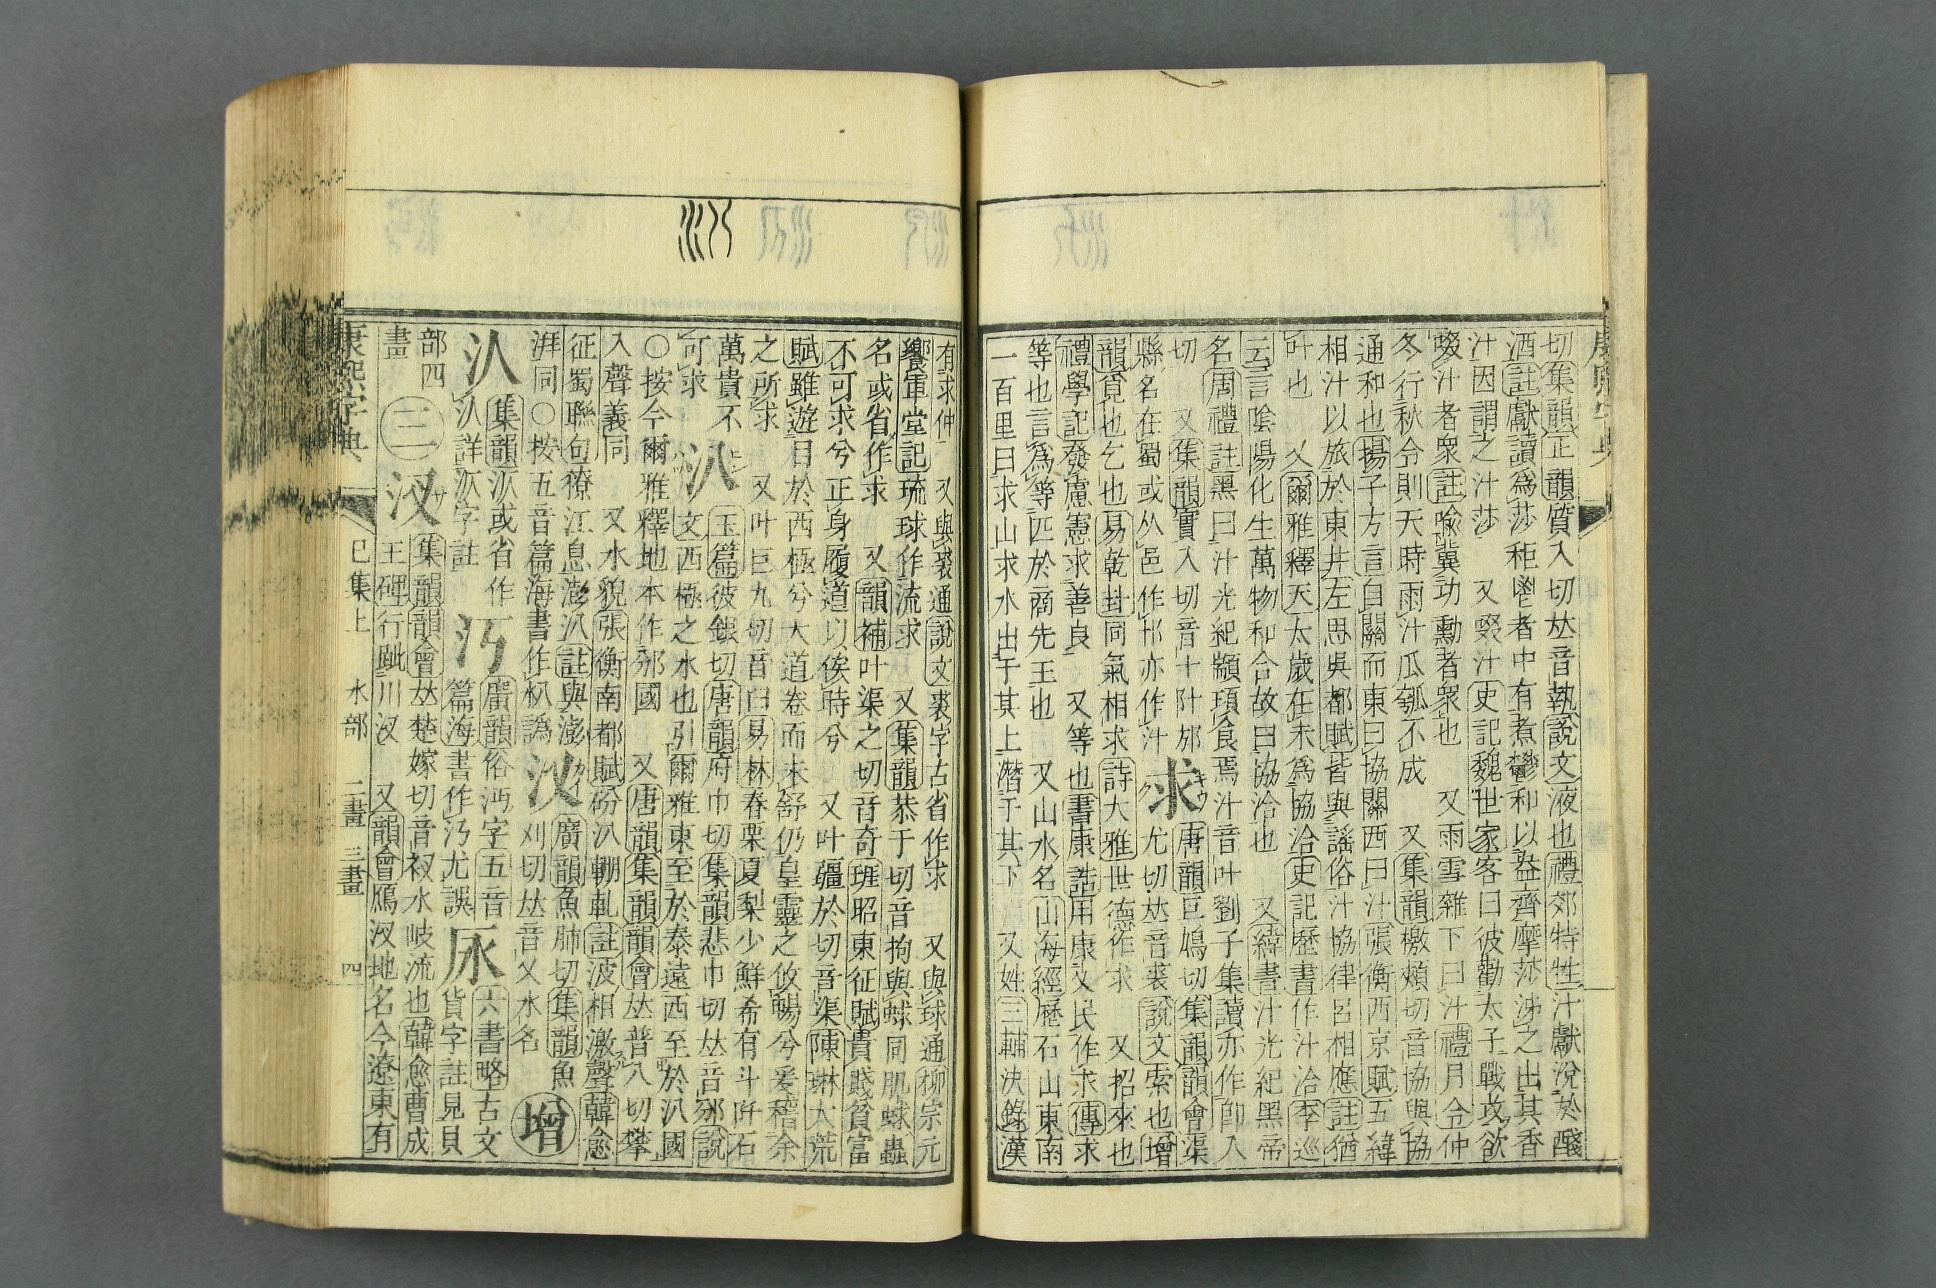 切集韻正韻質入切𠀤音執說文液也禮郊特牲汁獻涗於醆
酒註獻讀爲莎秬鬯者中有煮鬱和以盎齊摩莎泲之出其香
汁因謂之汁莎　又啜汁史記魏世家客曰彼勸太子戰攻欲
啜汁者衆註喻冀功勳者衆也　又雨雪雜下曰汁禮月令仲
冬行秋令則天時雨汁瓜瓠不成　又集韻檄頰切音協與協
通和也揚子方言自關而東曰協關西曰汁張衡西京賦五緯
相汁以旅於東井左思吳都賦皆與謠俗汁協律呂相應註猶
叶也　又爾雅釋天太歲在未爲協洽史記歷書作汁洽季巡
云言隂陽化生萬物和合故曰協洽也　又緯書汁光紀黑帝
名周禮註黑曰汁光紀顓頊食焉汁音叶劉子集讀亦作卽入
切　又集韻實入切音十汁邡
縣名在蜀或从邑作邡亦作汁
求
唐韻巨鳩切集韻韻會渠
尤切𠀤音裘說文索也增
韻覓也乞也易乾卦同氣相求詩大雅世德作求　又招來也
禮學記發慮憲求善良　又等也書康誥用康乂民作求傳求
等也言爲等匹於商先王也　又山水名山海經歷石山東南
一百里曰求山求水出于其上潛于其下　又姓三輔決錄漢
有求仲　又與裘通說文裘字古省作求　又與球通柳宗元
饗軍堂記琉球作流求　又集韻恭于切音拘與蛷同肌蛷蟲
名或省作求　又韻補叶渠之切音奇班昭東征賦貴賤貧富
不可求兮正身履道以俟時兮　又叶疆於切音渠陳琳大荒
賦雖遊目於西極兮大道卷而未舒仍皇靈之攸暢兮爰稽余
之所求　又叶巨九切音臼易林春栗夏梨少鮮希有斗阡石
萬貴不
可求
汃
玉篇彼銀切唐韻府巾切集韻悲巾切𠀤音邠說
文西極之水也引爾雅東至於泰遠西至於汃國
○按今爾雅釋地本作邠國　又唐韻集韻韻會𠀤普八切攀
入聲義同　又水貌張衡南都賦砏汃輣軋註波相激聲韓愈
征蜀聯句獠江息澎汃註與澎
湃同○按五音篇海書作朳譌
汷
廣韻魚肺切集韻魚
刈切𠀤音乂水名
增
汃
集韻汃或省作
汃詳汃字註
汅
廣韻俗沔字五音
篇海書作汅尤誤
尿
六書略古文
貨字註見貝
部四
畫
三
汊
集韻韻會𠀤楚嫁切音衩水岐流也韓愈曹成
王碑行跐川汊　又韻會鴈汊地名今遼東有
康熙字典
巳集上　水部　二畫　三畫　四